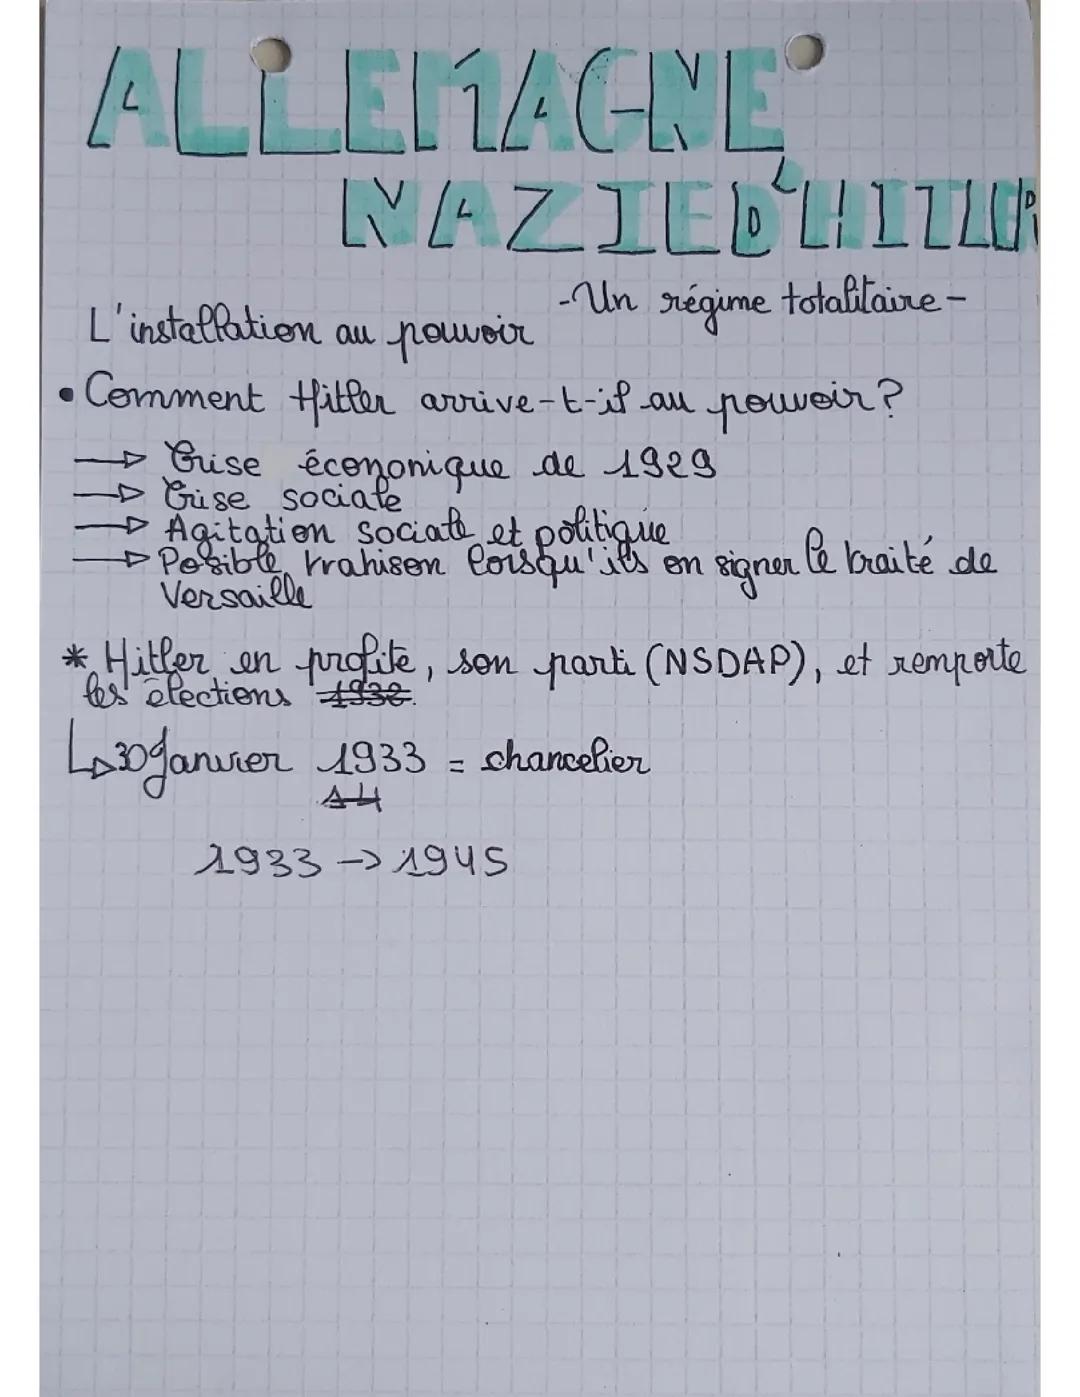 ALLEMAGNE
NAZIE D'HITLER
-Un régime totalitaire-
L'installation au pouvoir
• Comment Hitler arrive-t-il au pouvoir?
→ Crise éconnonique de 1929
→ Crise sociale
→ Agitation sociale et politique
→ Posible trahison lorsqu'ils on signer le traité de
Versaille
* Hitler en profite, son parti (NSDAP), et remporte
les élections 1932.
↳ 30 Janvier 1933 = chancelier
1933 → 1945